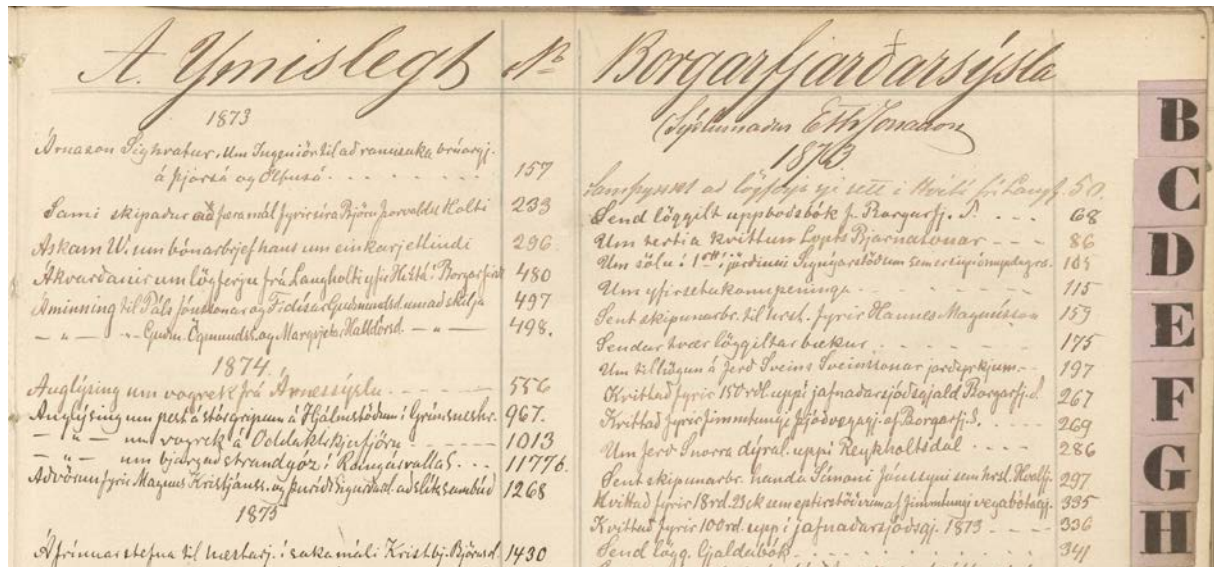 A. Ymislegt
No
1873
Árnason Sighvatur, Um Ingeniör til að rannsaka brúargj.
á Þjórsá og Ölfusá 157
Sami skipaður fyrir síra Björn Þorvaldss Holti 233
Askam W. um bónarbrjef hans um einkarjettindi 296
Akvarðanir um lögferju frá Langholti yfir Hvítá í Borgarfirði 480
Aminning til Páls Jónssonar og Guðmundsd. um að skilja 497
— „ — „ Guðm. Ögmundss. og Margrjetar Halldórsd. — „ — 498.
1874.
Auglýsing um vogrek frá Árnessýslu 556
Auglýsing um pest á stórgripum á Hjálmstöðum í Grímsneshr. 967.
— „ — um vogrek á Oddakirkjufjöru 1013
— „ — um bjargað strandgóz í Rangárvallas. 1177b.
Aðvörun fyrir Magnus Kristjánss. og Þuríði Sigurðard. að slíta sambúð 1268
1875
Áfrínunarstefna til hestarj. í sakamáli Kristbj. Björnsd. 1430
Borgarfjarðarsýsla
(Sýslumaður E Th Jonasson
1873
að lögferja sje sett í Hvítá frá Langh. 50.
Send löggilt uppboðsbók f. Borgarfj. S. 68
Um tertia kvittun Lopts Bjarnasonar 86
Um sölu í jörðinni Signýarstöðum sem er ómyndugra 105
Um yfirsetukonupeninga 115
Sent skipunarbr. til hrst. fyrir Hannes Magnússon 159
Sendar tvær löggiltar bækur 175
Um tillögun á ferð Sveins Sveinssonar jarðyrkjum. 197
Kvittað fyrir 150 rdl. uppí jafnaðarsjóðsgjald Borgarfj. S. 267
Kvittað fyrir fimmtungi þjóðvegagj. af Borgarfj. S. 269
Um ferð Snorra dýral. uppí Reykholtsdal 286
Sent skipunarbr. handa Símoni Jónssyni sem hrst. Hvalfj. 297
Kvittað fyrir 18 rd. 25 sk sem eptirstöðvum af fimmtungi vegabótagj. 335
Kvittað fyrir 100 rd. upp í jafnaðarsjóðsgj. 1873 336
Send lögg. Gjaldabók 341
B
C
D
E
F
G
H